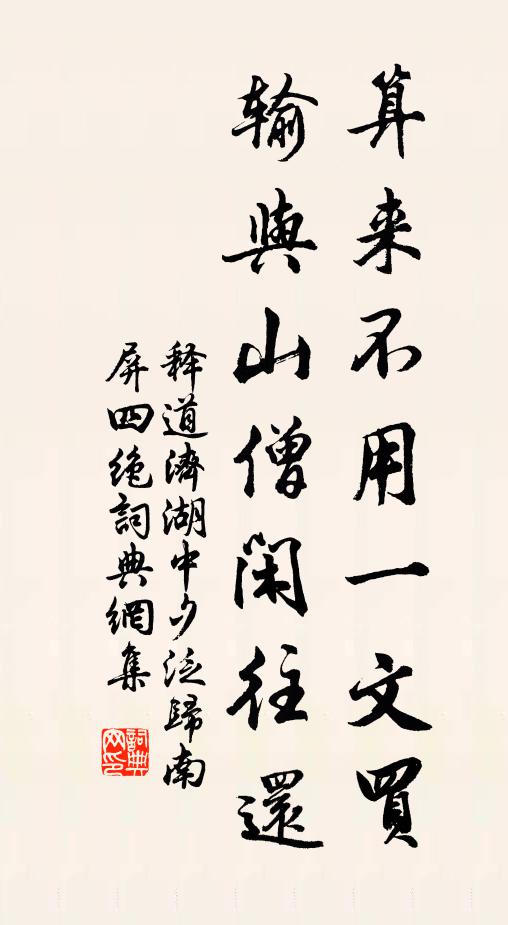 算来不用一文買
輸與山僧閑往還
释道濟湖中夕泛歸南
屏四绝詞典網集
詞典网印